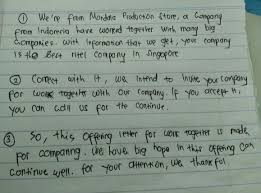 ① We're from Mondans Production Store, a Company
from Indonesia have worked together with many big
Companies. with Information that we get, your company
is the Best ritel Company in Singapore
② Correct with it, we intend to invite your company
for work together with our company. If you accept it,
you can call us for the continue.
③ So, this offering letter for work together is made
for companing. We have big hope in this offering can
continue well. for your attention, we thankful.